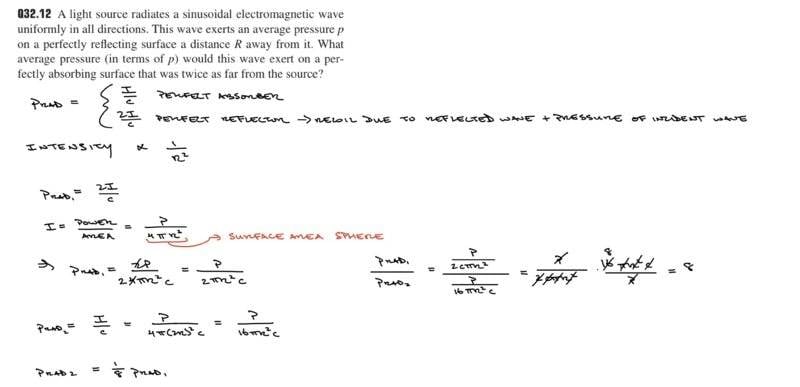 Q32.12 A light source radiates a sinusoidal electromagnetic wave
uniformly in all directions. This wave exerts an average pressure p
on a perfectly reflecting surface a distance R away from it. What
average pressure (in terms of p) would this wave exert on a per-
fectly absorbing surface that was twice as far from the source?
PRAD = { I/c PERFECT ABSORBER
2I/c PERFECT REFLECTOR → RECOIL DUE TO REFLECTED WAVE + PRESSURE OF INCIDENT WAVE
INTENSITY ∝ 1/R²
PRAD₁ = 2I/c
I = POWER/AREA = P/4πR² → SURFACE AREA SPHERE
⇒ PRAD₁ = 2P/24πR²c = P/2πR²c
PRAD₁/PRAD₂ = (P/2cπR²)/(P/16πR²c) = P/2cπR² · 8 16πR²c/P = 8
PRAD₂ = I/c = P/4π(2R)²c = P/16πR²c
PRAD2 = 1/8 PRAD₁